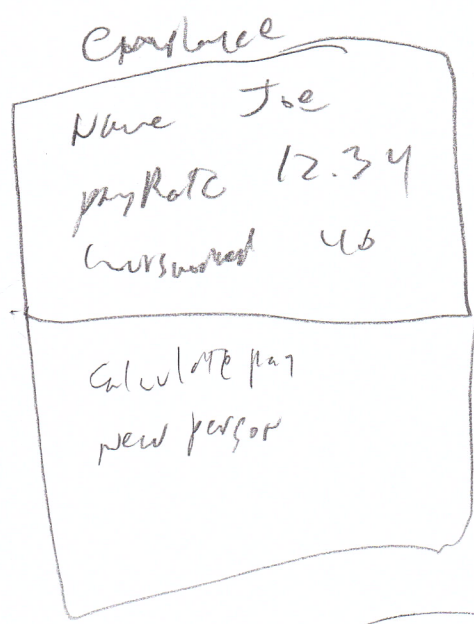 Employee
Name Joe
payRate 12.34
hoursworked 40
Calculate pay
New person